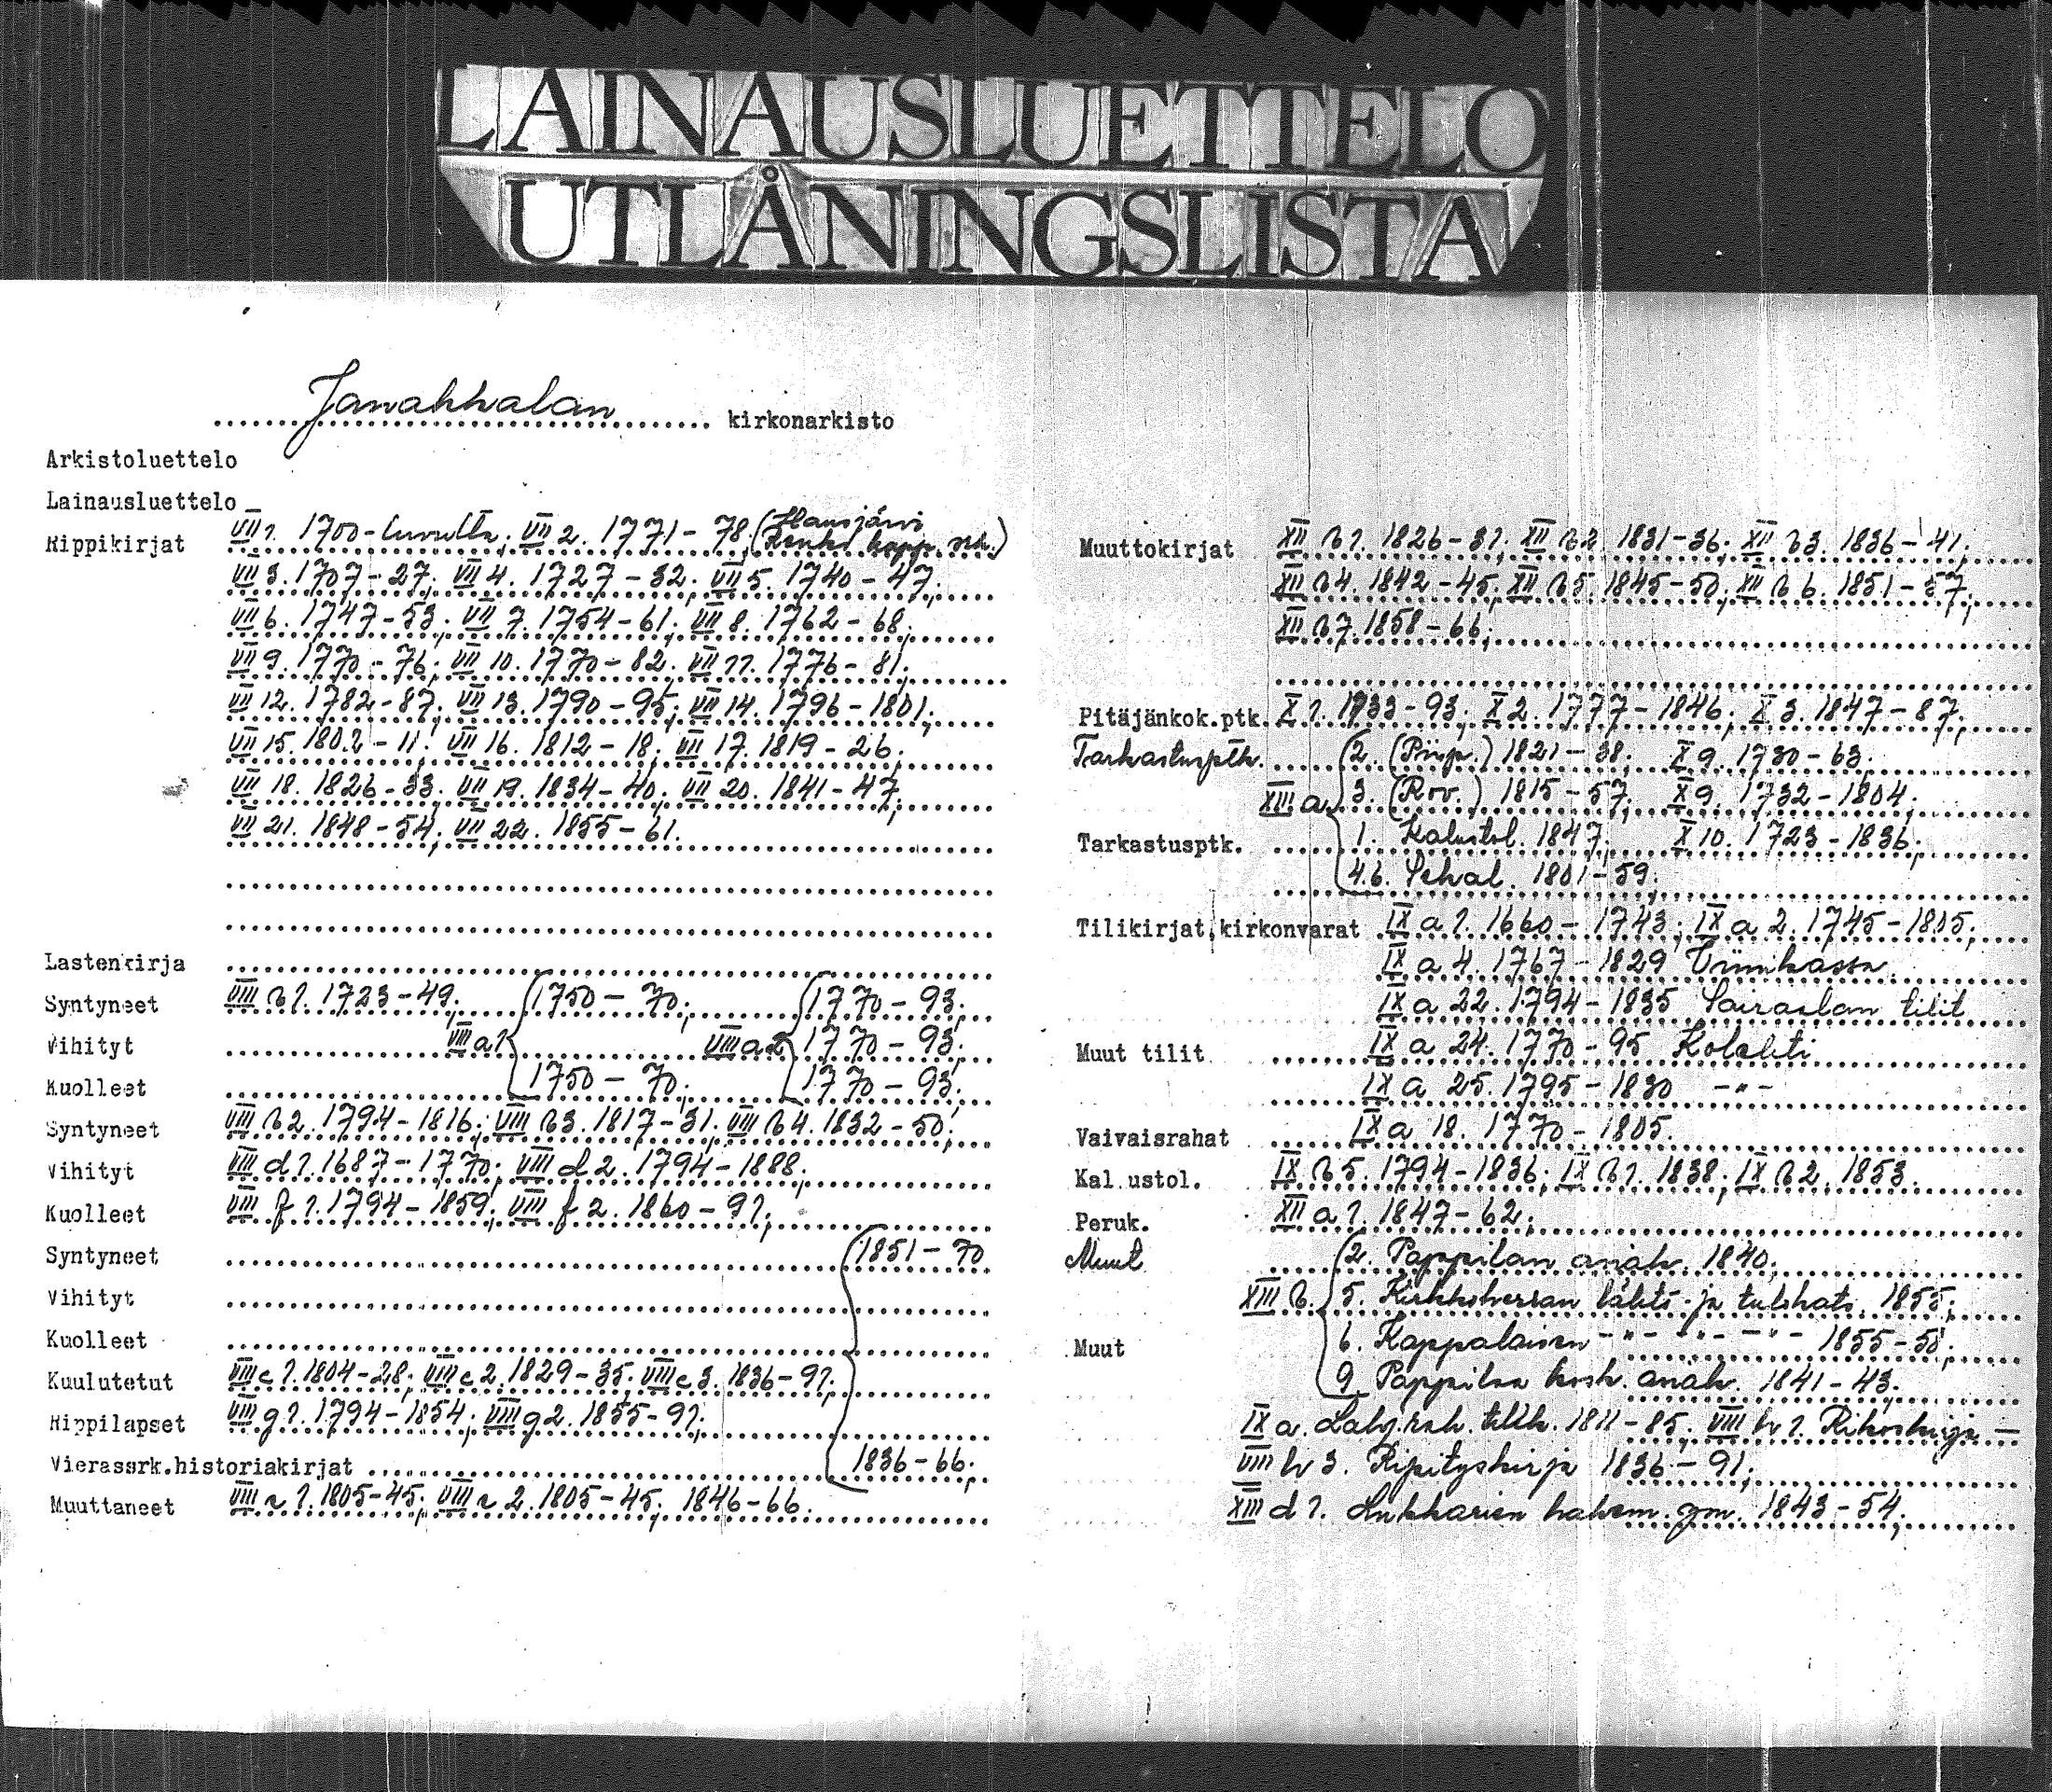 LAINAUSLUETTELO
UTLÅNINGSLISTA
Janakkalan kirkonarkisto
Arkistoluettelo
Lainausluettelo
Rippikirjat VII 1. 1700-luvulta; VII 2. 1771-78 (Hausjärvi
kapp. srk.)
VII 3. 1707-27; VII 4. 1727-32; VII 5. 1740-47;
VII 6. 1747-53; VII 7. 1754-61; VII 8. 1762-68;
VII 9. 1770-76; VII 10. 1770-82; VII 11. 1776-81;
VII 12. 1782-87; VII 13. 1790-95; VII 14. 1796-1801;
VII 15. 1802-11; VII 16. 1812-18; VII 17. 1819-26;
VII 18. 1826-33; VII 19. 1834-40; VII 20. 1841-47;
VII 21. 1848-54; VII 22. 1855-61.
Lastenkirja
Syntyneet VIII b 1. 1723-49; 1750-70; 1770-93;
Vihityt VIII a 1 VIII a 2 1770-93;
Kuolleet 1750-70; 1770-93;
Syntyneet VIII b 2. 1794-1816; VIII b 3. 1817-31; VIII b 4. 1832-50;
Vihityt VIII d 1. 1687-1770; VIII d 2. 1794-1888;
Kuolleet VIII f 1. 1794-1859; VIII f 2. 1860-91;
Syntyneet 1851-70
Vihityt
Kuolleet
Kuulutetut VIII c 1. 1804-28; VIII c 2. 1829-35; VIII c 3. 1836-91;
Rippilapset VIII g 1. 1794-1854; VIII g 2. 1855-91;
Vierassrk.historiakirjat 1836-66;
Muuttaneet VIII 1. 1805-45; VIII 2. 1805-45; 1846-66.
Muuttokirjat XII b 1. 1826-31; XII b 2 1831-36; XII b 3. 1836-41;
XII b 4. 1842-45; XII b 5. 1845-50; XII b 6. 1851-57;
XII b 7. 1858-66;
Pitäjänkok.ptk. X 1. 1733-93; X 2. 1777-1846; X 3. 1847-87;
Tarkastusptk. 2. (Piisp.) 1821-38; X 9. 1730-63;
XIII a 3. (Rov.) 1815-57; X 9. 1732-1804;
Tarkastusptk. 1. Kalustol. 1847; X 10. 1723-1836;
4.6. 1801-59;
Tilikirjat, kirkonvarat IX a 1. 1660-1743; IX a 2. 1745-1805;
IX a 4. 1767-1829
IX a 22. 1794-1835 Sairaalan tilit
Muut tilit IX a 24. 1770-95 Kolehti
IX a 25. 1795-1830 -"-
Vaivaisrahat IX a 18. 1770-1805.
Kalustol. IX b 5. 1794-1836; IX b 1. 1838; IX b 2. 1853.
Peruk. XII a 1. 1847-62;
Muut 2. Pappilan 1840;
XIII b. 5. Kirkkoherran lähet- ja tulokato. 1855;
Muut 6. Kappalaisen -"- -"- -"- 1855-58;
9. Pappilan 1841-43.
IX a. 1811-85; VIII h 1. Rikoskirja —
VIII h 3. Ripityskirja 1836-91;
XIII d 1. 1843-54;